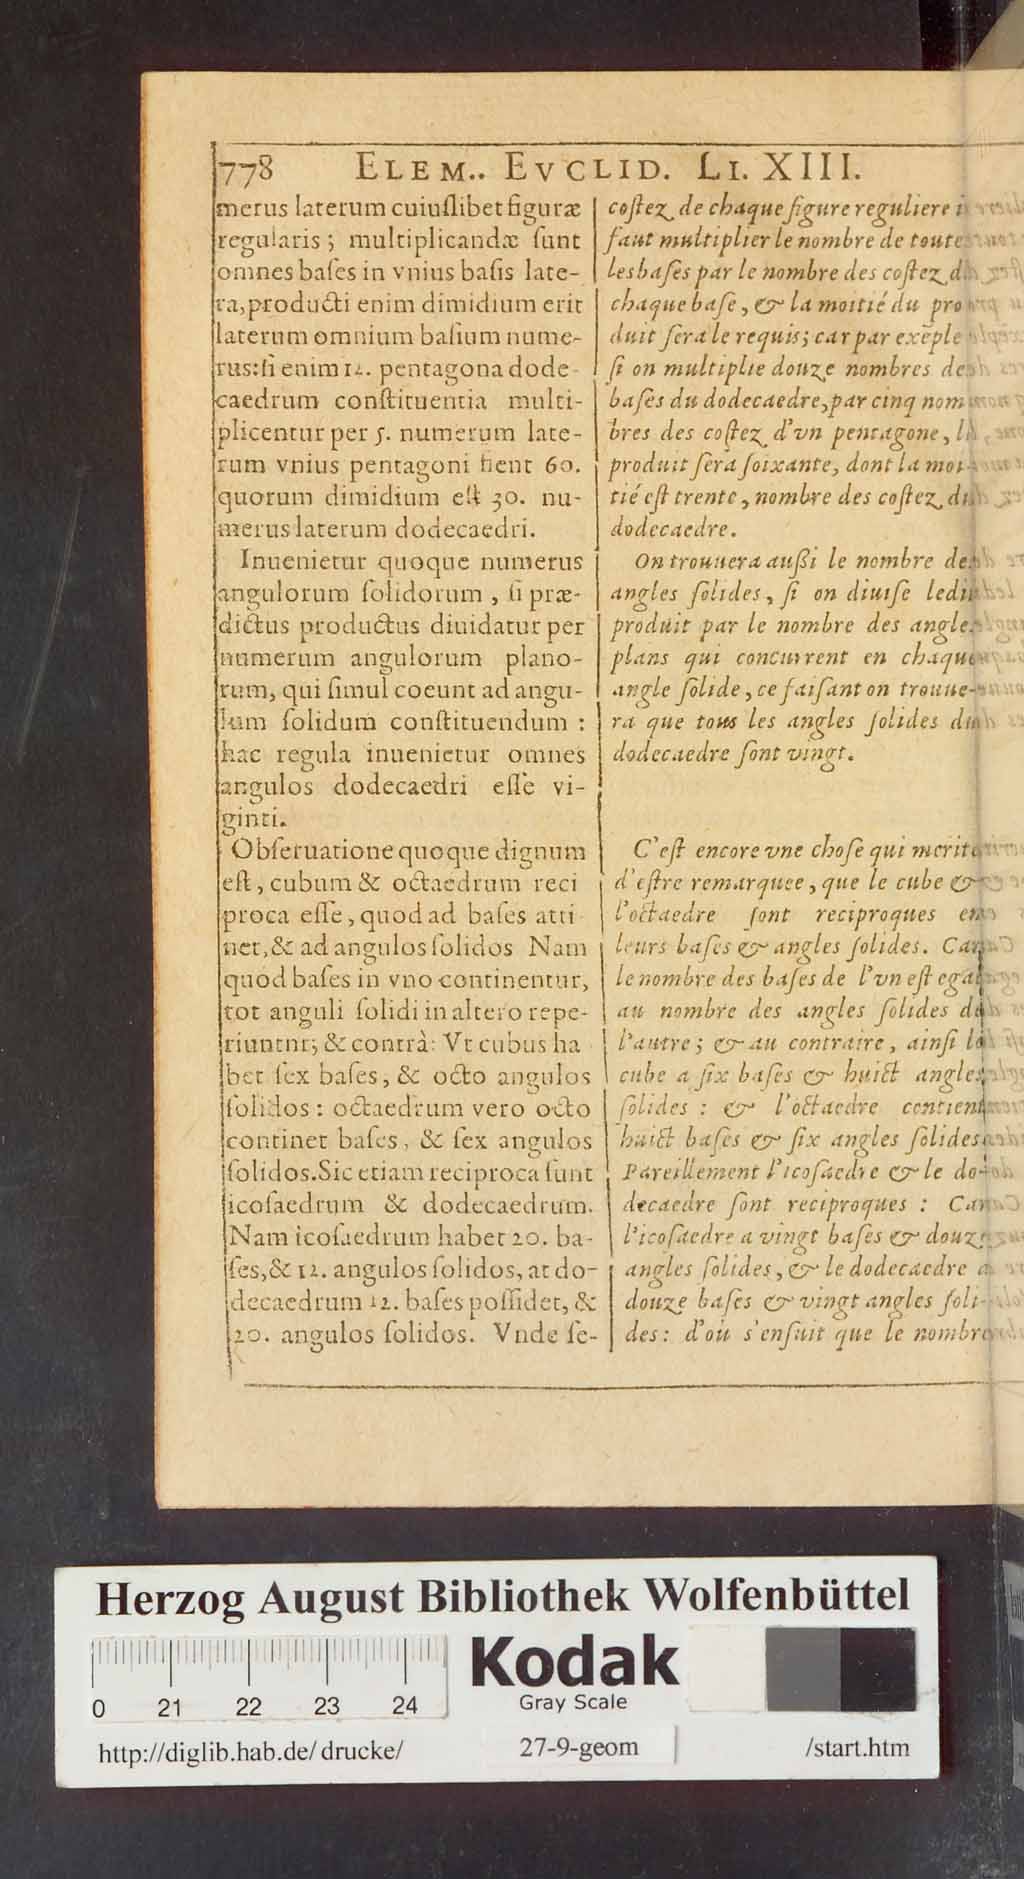 778 ELEM.. EVCLID. LI. XIII.
merus laterum cuiuſlibet figuræ
regularis; multiplicandæ ſunt
omnes baſes in vnius baſis late-
ra, producti enim dimidium erit
laterum omnium baſium nume-
rus: ſi enim 12. pentagona dode-
caedrum conſtituentia multi-
plicentur per 5. numerum late-
rum vnius pentagoni fient 60.
quorum dimidium eſt 30. nu-
merus laterum dodecaedri.
Inuenietur quoque numerus
angulorum ſolidorum, ſi præ-
dictus productus diuidatur per
numerum angulorum plano-
rum, qui ſimul coeunt ad angu-
lum ſolidum conſtituendum :
hac regula inuenietur omnes
angulos dodecaedri eſſe vi-
ginti.
Obſeruatione quoque dignum
eſt, cubum & octaedrum reci
proca eſſe, quod ad baſes atti
net, & ad angulos ſolidos Nam
quod baſes in vno continentur,
tot anguli ſolidi in altero repe-
riuntnr; & contrà: Vt cubus ha
bet ſex baſes, & octo angulos
ſolidos: octaedrum vero octo
continet baſes, & ſex angulos
ſolidos. Sic etiam reciproca ſunt
icoſaedrum & dodecaedrum.
Nam icoſaedrum habet 20. ba-
ſes, & 12. angulos ſolidos, at do-
decaedrum 12. baſes poſſidet, &
20. angulos ſolidos. Vnde ſe-
coſtez de chaque figure reguliere i
faut multiplier le nombre de toute
les baſes par le nombre des coſtez d
chaque baſe, & la moitié du pro
duit ſera le requis; car par exẽple
ſi on multiplie douze nombres de
baſes du dodecaedre, par cinq nom
bres des coſtez d'vn pentagone, l
produit ſera ſoixante, dont la moi-
tié eſt trente, nombre des coſtez du
dodecaedre.
On trouuera auſſi le nombre de
angles ſolides, ſi on diuiſe ledi
produit par le nombre des angle
plans qui concurrent en chaque
angle ſolide, ce faiſant on trouue-
ra que tous les angles ſolides du
dodecaedre ſont vingt.
C'eſt encore vne choſe qui merite
d'eſtre remarquee, que le cube &
l'octaedre ſont reciproques en
leurs baſes & angles ſolides. Car
le nombre des baſes de l'vn eſt egal
au nombre des angles ſolides de
l'autre; & au contraire, ainſi le
cube a ſix baſes & huict angles
ſolides : & l'octaedre contient
huict baſes & ſix angles ſolides
Pareillement l'icoſaedre & le do-
decaedre ſont reciproques : Car
l'icoſaedre a vingt baſes & douze
angles ſolides, & le dodecaedre a
douze baſes & vingt angles ſoli-
des: d'où s'enſuit que le nombre
Herzog August Bibliothek Wolfenbüttel
0 21 22 23 24
Kodak
Gray Scale
http://diglib.hab.de/drucke/ 27-9-geom /start.htm